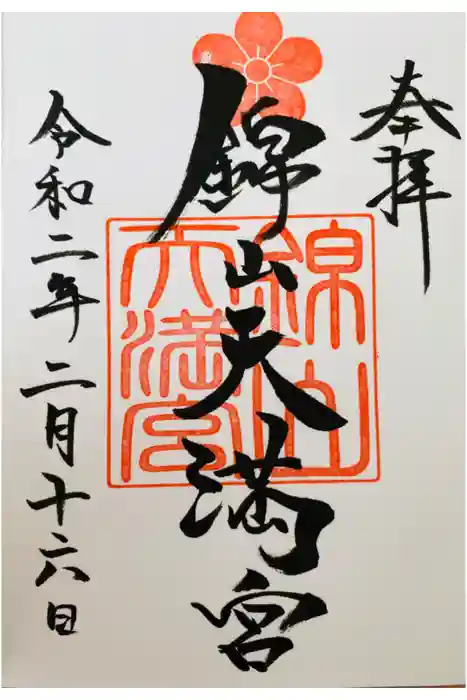 奉拝
錦山天満宮
令和二年二月十六日
錦山
天満宮